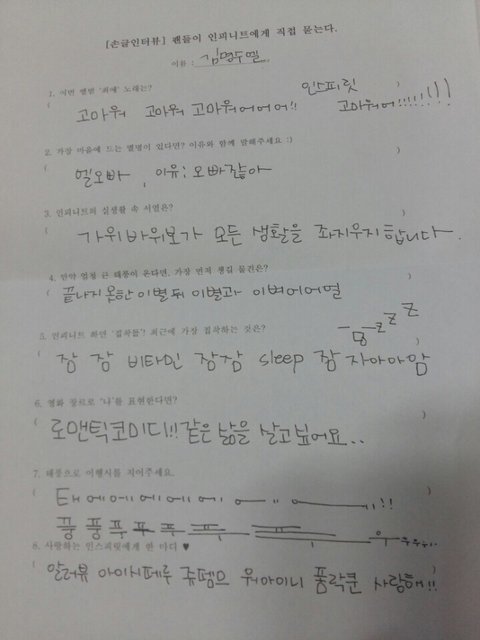 [손글인터뷰] 팬들이 인피니트에게 직접 묻는다.
이름 : 김명수엘
1. 이번 앨범 '최애' 노래는?
인스피릿
( 고마워 고마워 고마워어어어!! 고마워어!!!!!!!! )
2. 가장 마음에 드는 별명이 있다면? 이유와 함께 말해주세요 :)
( 엘오빠, 이유: 오빠잖아 )
3. 인피니트의 실생활 속 서열은?
( 가위바위보가 모든 생활을 좌지우지합니다. )
4. 만약 엄청 큰 태풍이 온다면, 가장 먼저 챙길 물건은?
( 끝나지 않한 이별 뒤 이별과 이벼어어어얼 )
5. 인피니트 하면 '집착돌'? 최근에 가장 집착하는 것은?
( 잠 잠 비타민 잠잠 sleep 잠 자아아암 )
6. 영화 장르로 '나'를 표현한다면?
( 로맨틱코미디!! 같은 삶을 살고싶어요.. )
7. 태풍으로 이행시를 지어주세요.
( 태에에에에에
풍 풍 푸 푸 푸 )
8. 사랑하는 인스피릿에게 한 마디 ♥
( 알러뷰 아이시떼루 쥬뗌므 워아이니 품락쿤 사랑해!! )